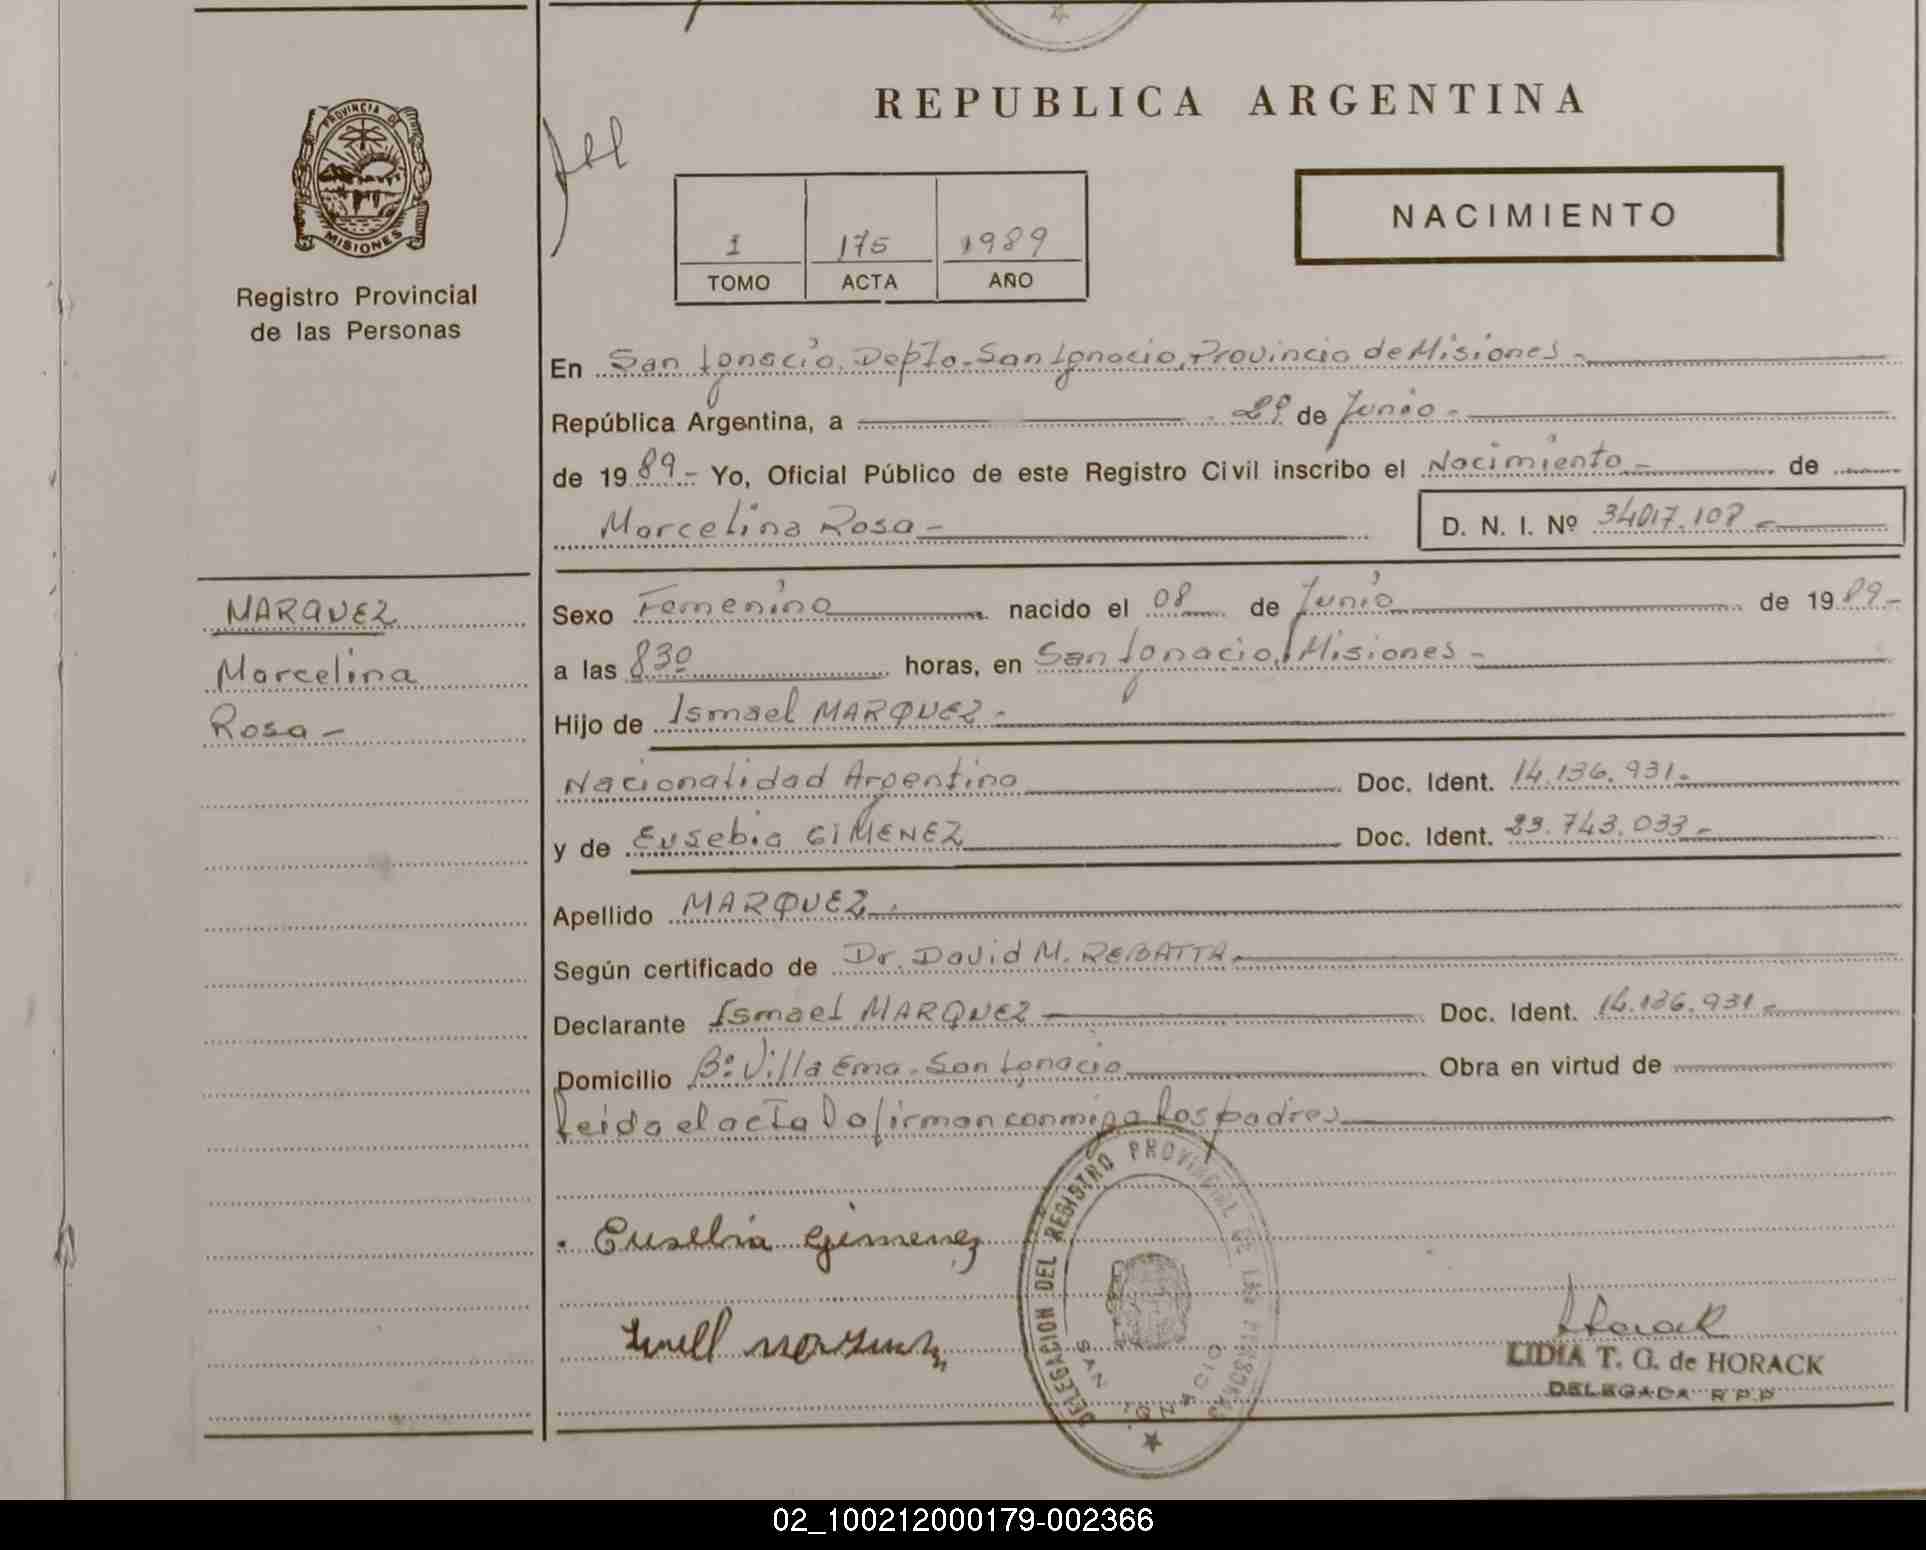 REPUBLICA ARGENTINA
PROVINCIA DE
MISIONES
Registro Provincial
de las Personas
1 175 1989
TOMO ACTA AÑO
NACIMIENTO
En San Ignacio, Depto. San Ignacio, Provincia de Misiones -
República Argentina, a 29 de Junio -
de 1989 - Yo, Oficial Público de este Registro Civil inscribo el Nacimiento - de
Marcelina Rosa - D. N. I. Nº 34017.108 -
MARQUEZ
Marcelina
Rosa -
Sexo Femenino nacido el 08 de Junio de 1989 -
a las 830 horas, en San Ignacio, Misiones -
Hijo de Ismael MARQUEZ -
Nacionalidad Argentina Doc. Ident. 14.136.931 -
y de Eusebia GIMENEZ Doc. Ident. 23.743.033 -
Apellido MARQUEZ -
Según certificado de Dr. David M. REBATTA -
Declarante Ismael MARQUEZ - Doc. Ident. 14.136.931 -
Domicilio Bº Villa Ema - San Ignacio Obra en virtud de
Leida el acta la firman conmigo los padres
Eusebia Gimenez
DELEGACION DEL REGISTRO PROVINCIAL DE LAS PERSONAS
SAN IGNACIO
Horack
LIDIA T. G. de HORACK
DELEGADA R.P.P
02_100212000179-002366